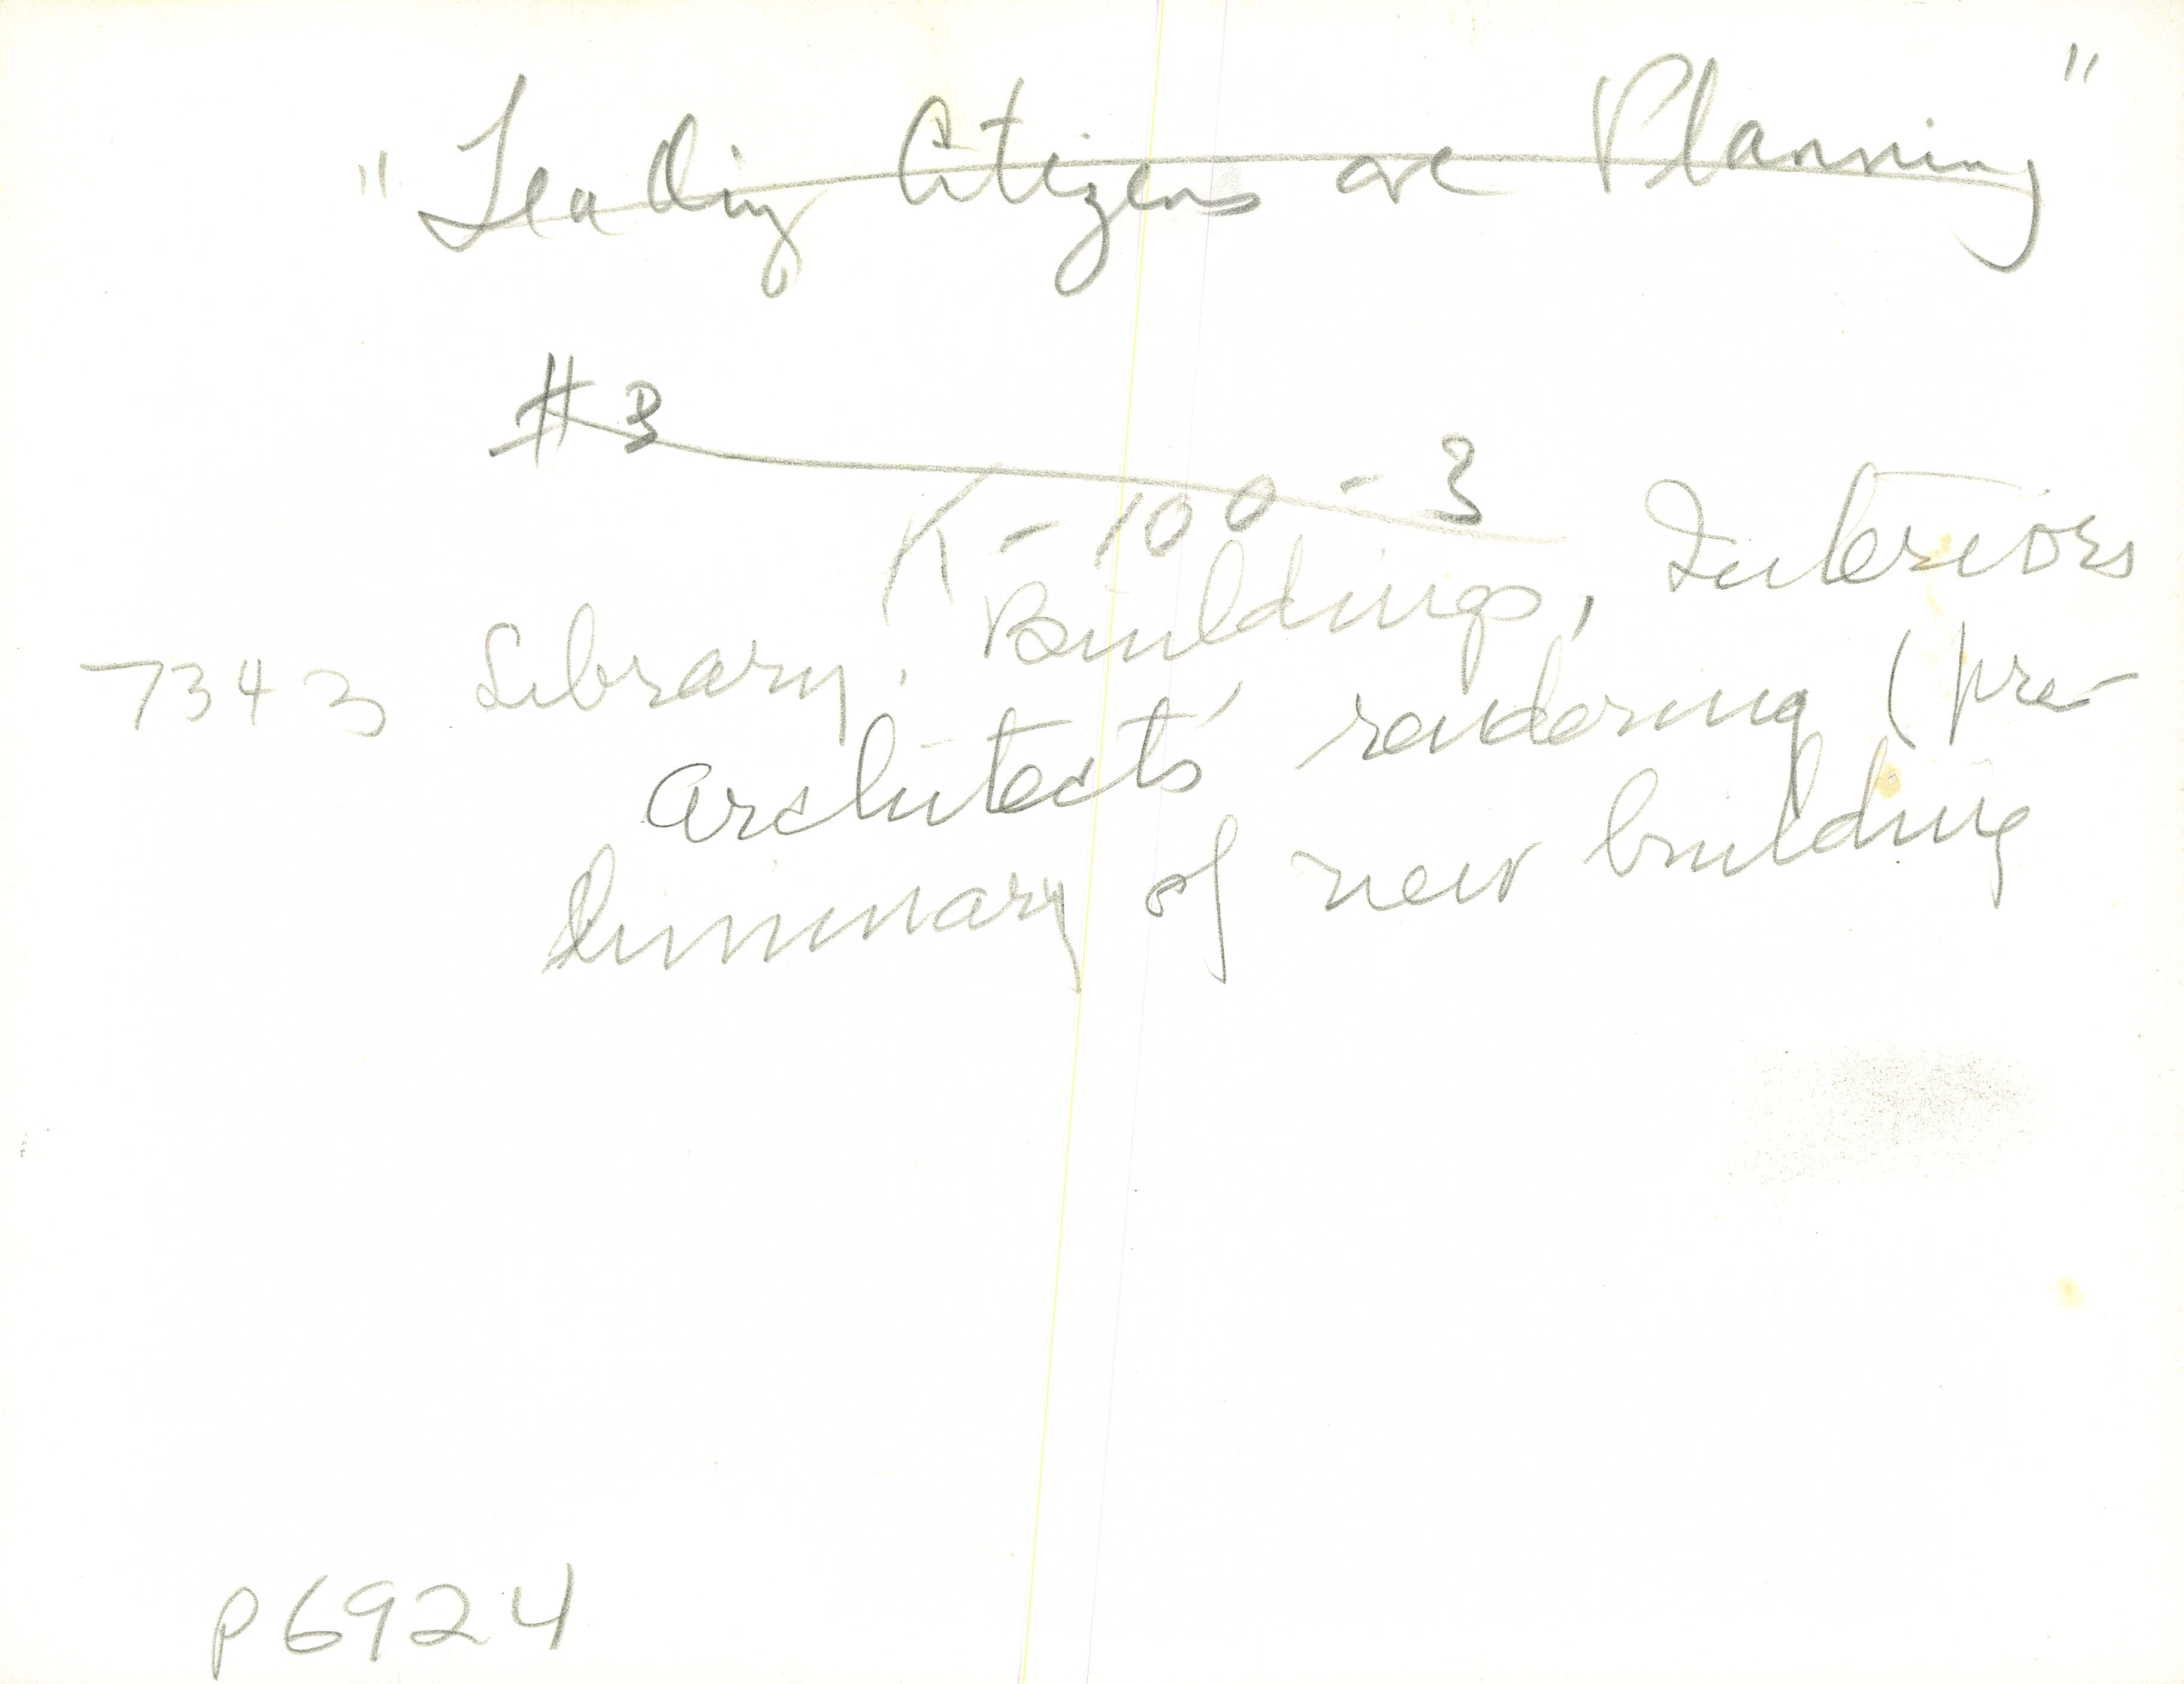 "Leading Citizens are Planning"
#3
K-100-3
7343 Library. Buildings, Interiors
Architects' rendering (pre-
liminary of new building
P6924